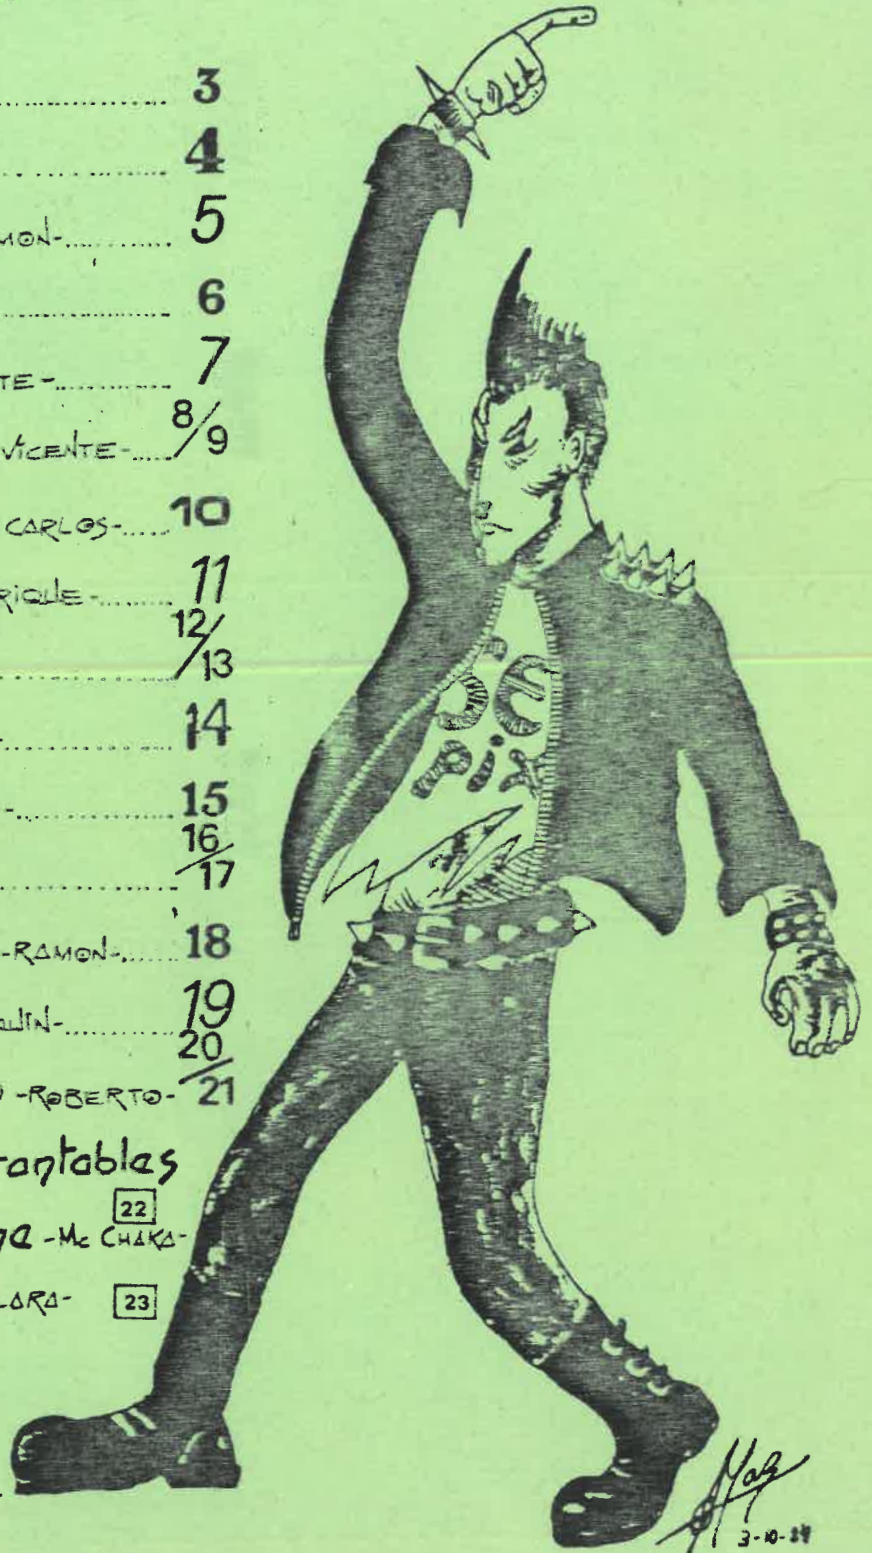 3
4
MON- 5
6
TE- 7
VICENTE- 8/9
CARLOS- 10
RIQUE- 11
12/13
14
- 15
16/17
-RAMON- 18
UIN- 19
-ROBERTO- 20/21
rantables
22
na -Mc CHAKA-
LARA- 23
DE
PiX
3-10-84